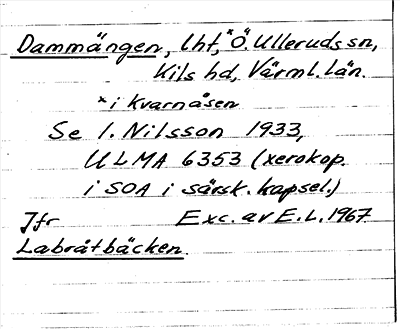 Dammängen, lht, *Ö. Ulleruds sn,
Kils hd, Värml. län.
* i Kvarnåsen
Se I. Nilsson 1933,
ULMA 6353 (xerokop.
i SOA i särsk. kapsel.)
Jfr Exc. av E.L. 1967.
Labråtbäcken.